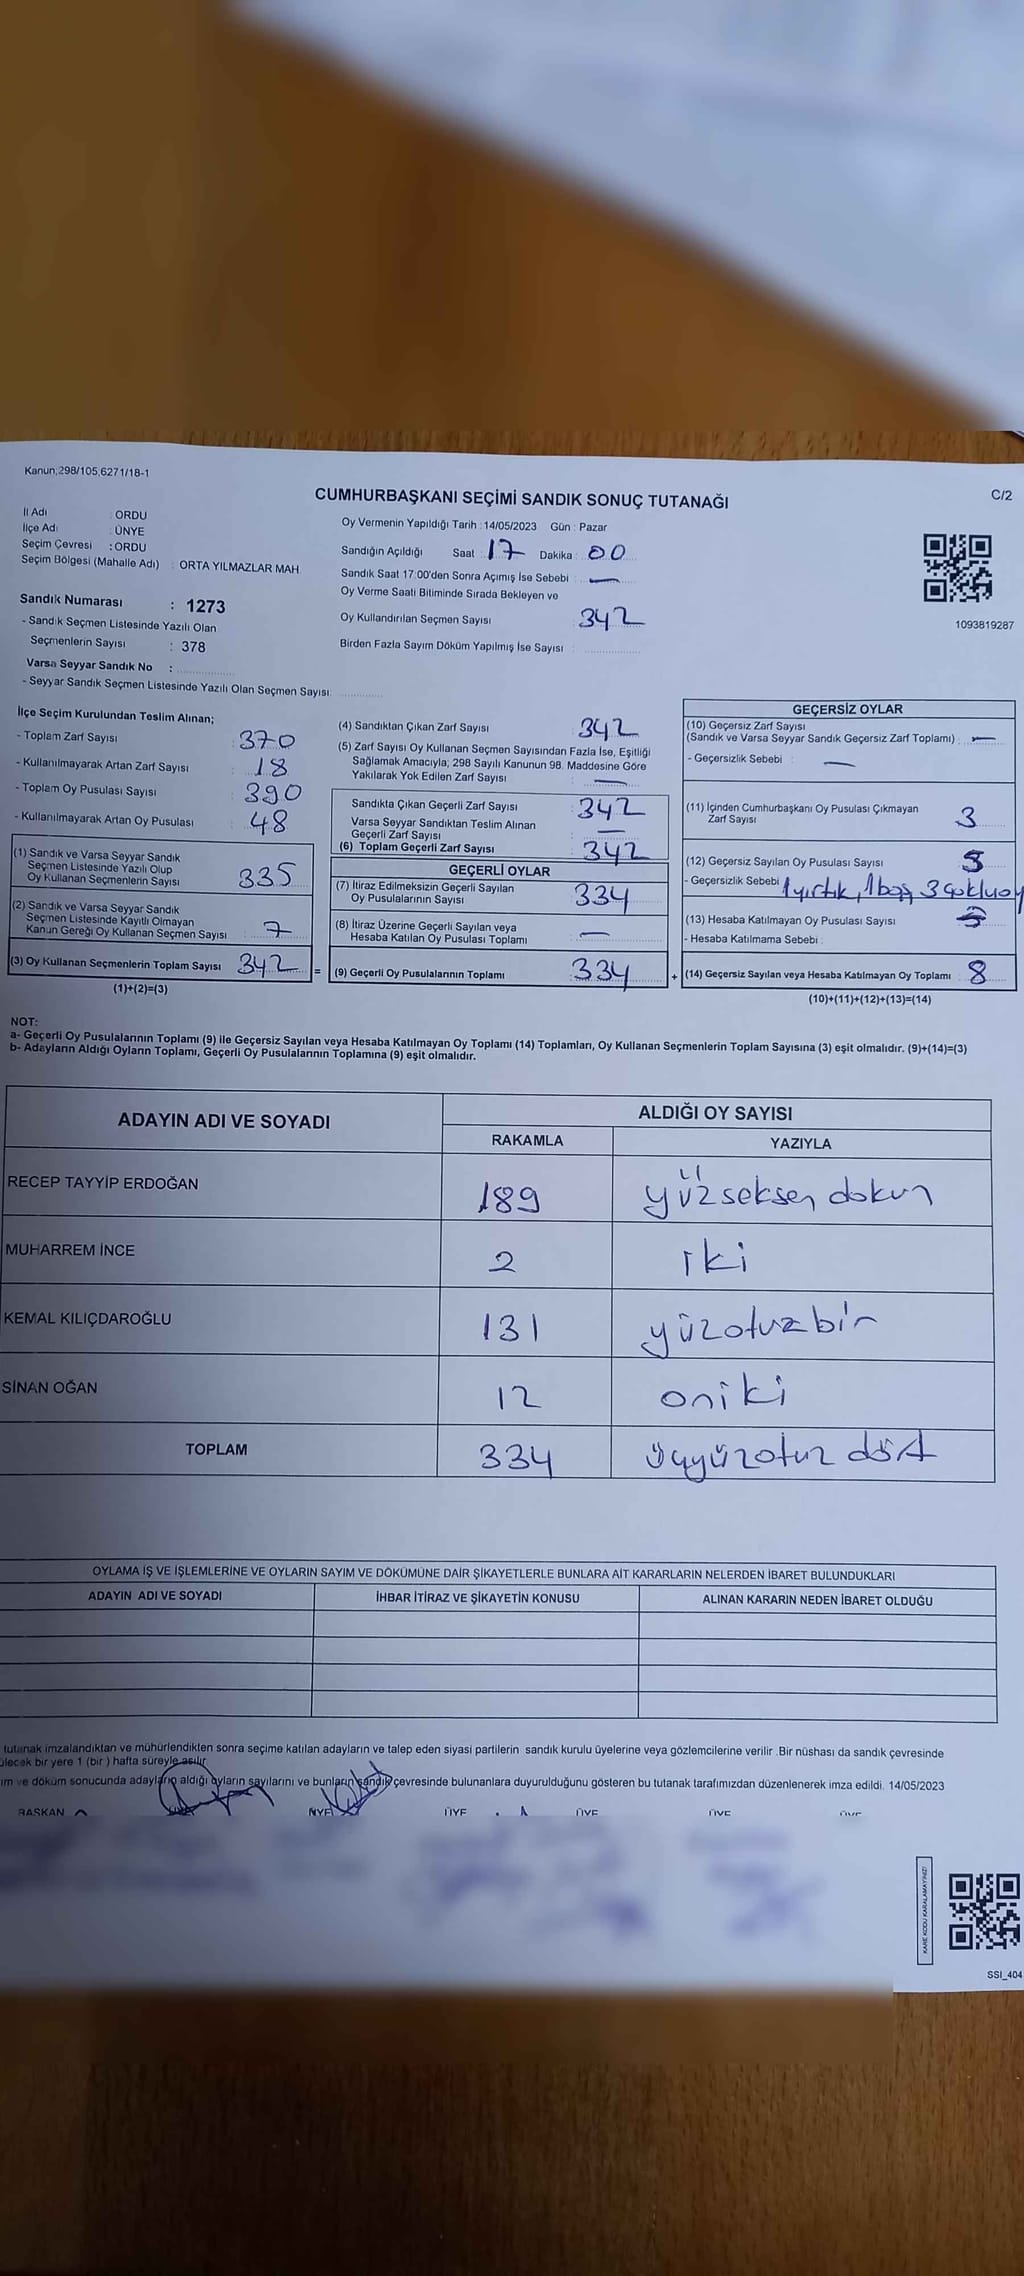 Kanun;298/105,6271/18-1
C/2
CUMHURBAŞKANI SEÇİMİ SANDIK SONUÇ TUTANAĞI
İl Adı : ORDU
İlçe Adı : ÜNYE
Seçim Çevresi : ORDU
Seçim Bölgesi (Mahalle Adı) : ORTA YILMAZLAR MAH.
Sandık Numarası : 1273
- Sandık Seçmen Listesinde Yazılı Olan
Seçmenlerin Sayısı : 378
Varsa Seyyar Sandık No :
- Seyyar Sandık Seçmen Listesinde Yazılı Olan Seçmen Sayısı:
Oy Vermenin Yapıldığı Tarih : 14/05/2023 Gün : Pazar
Sandığın Açıldığı Saat : 17 Dakika : 00
Sandık Saat 17:00'den Sonra Açımış İse Sebebi : —
Oy Verme Saati Bitiminde Sırada Bekleyen ve
Oy Kullandırılan Seçmen Sayısı : 342
Birden Fazla Sayım Döküm Yapılmış İse Sayısı :
1093819287
İlçe Seçim Kurulundan Teslim Alınan;
- Toplam Zarf Sayısı : 370
- Kullanılmayarak Artan Zarf Sayısı : 18
- Toplam Oy Pusulası Sayısı : 390
- Kullanılmayarak Artan Oy Pusulası : 48
(1) Sandık ve Varsa Seyyar Sandık
Seçmen Listesinde Yazılı Olup
Oy Kullanan Seçmenlerin Sayısı : 335
(2) Sandık ve Varsa Seyyar Sandık
Seçmen Listesinde Kayıtlı Olmayan
Kanun Gereği Oy Kullanan Seçmen Sayısı : 7
(3) Oy Kullanan Seçmenlerin Toplam Sayısı 342 =
(1)+(2)=(3)
(4) Sandıktan Çıkan Zarf Sayısı : 342
(5) Zarf Sayısı Oy Kullanan Seçmen Sayısından Fazla İse, Eşitliği
Sağlamak Amacıyla; 298 Sayılı Kanunun 98. Maddesine Göre
Yakılarak Yok Edilen Zarf Sayısı : —
Sandıkta Çıkan Geçerli Zarf Sayısı : 342
Varsa Seyyar Sandıktan Teslim Alınan
Geçerli Zarf Sayısı : —
(6) Toplam Geçerli Zarf Sayısı : 342
GEÇERLİ OYLAR
(7) İtiraz Edilmeksizin Geçerli Sayılan
Oy Pusulalarının Sayısı : 334
(8) İtiraz Üzerine Geçerli Sayılan veya
Hesaba Katılan Oy Pusulası Toplamı : —
(9) Geçerli Oy Pusulalarının Toplamı : 334 +
GEÇERSİZ OYLAR
(10) Geçersiz Zarf Sayısı
(Sandık ve Varsa Seyyar Sandık Geçersiz Zarf Toplamı) : —
- Geçersizlik Sebebi : —
(11) İçinden Cumhurbaşkanı Oy Pusulası Çıkmayan
Zarf Sayısı : 3
(12) Geçersiz Sayılan Oy Pusulası Sayısı : 5
- Geçersizlik Sebebi : 1 yırtık, 1 boş, 3 çoklu oy
(13) Hesaba Katılmayan Oy Pusulası Sayısı :
- Hesaba Katılmama Sebebi :
(14) Geçersiz Sayılan veya Hesaba Katılmayan Oy Toplamı : 8
(10)+(11)+(12)+(13)=(14)
NOT:
a- Geçerli Oy Pusulalarının Toplamı (9) ile Geçersiz Sayılan veya Hesaba Katılmayan Oy Toplamı (14) Toplamları, Oy Kullanan Seçmenlerin Toplam Sayısına (3) eşit olmalıdır. (9)+(14)=(3)
b- Adayların Aldığı Oyların Toplamı, Geçerli Oy Pusulalarının Toplamına (9) eşit olmalıdır.
ADAYIN ADI VE SOYADI ALDIĞI OY SAYISI
RAKAMLA YAZIYLA
RECEP TAYYİP ERDOĞAN 189 yüzseksen dokuz
MUHARREM İNCE 2 iki
KEMAL KILIÇDAROĞLU 131 yüzotuzbir
SİNAN OĞAN 12 oniki
TOPLAM 334 üçyüzotuz dört
OYLAMA İŞ VE İŞLEMLERİNE VE OYLARIN SAYIM VE DÖKÜMÜNE DAİR ŞİKAYETLERLE BUNLARA AİT KARARLARIN NELERDEN İBARET BULUNDUKLARI
ADAYIN ADI VE SOYADI İHBAR İTİRAZ VE ŞİKAYETİN KONUSU ALINAN KARARIN NEDEN İBARET OLDUĞU
tutanak imzalandıktan ve mühürlendikten sonra seçime katılan adayların ve talep eden siyasi partilerin sandık kurulu üyelerine veya gözlemcilerine verilir .Bir nüshası da sandık çevresinde
ülecek bir yere 1 (bir ) hafta süreyle asılır.
ım ve döküm sonucunda adayların aldığı oyların sayılarını ve bunların sandık çevresinde bulunanlara duyurulduğunu gösteren bu tutanak tarafımızdan düzenlenerek imza edildi. 14/05/2023
BAŞKAN ÜYE ÜYE ÜYE ÜYE
KARE KODU KARALAMAYINIZ!
SSI_404